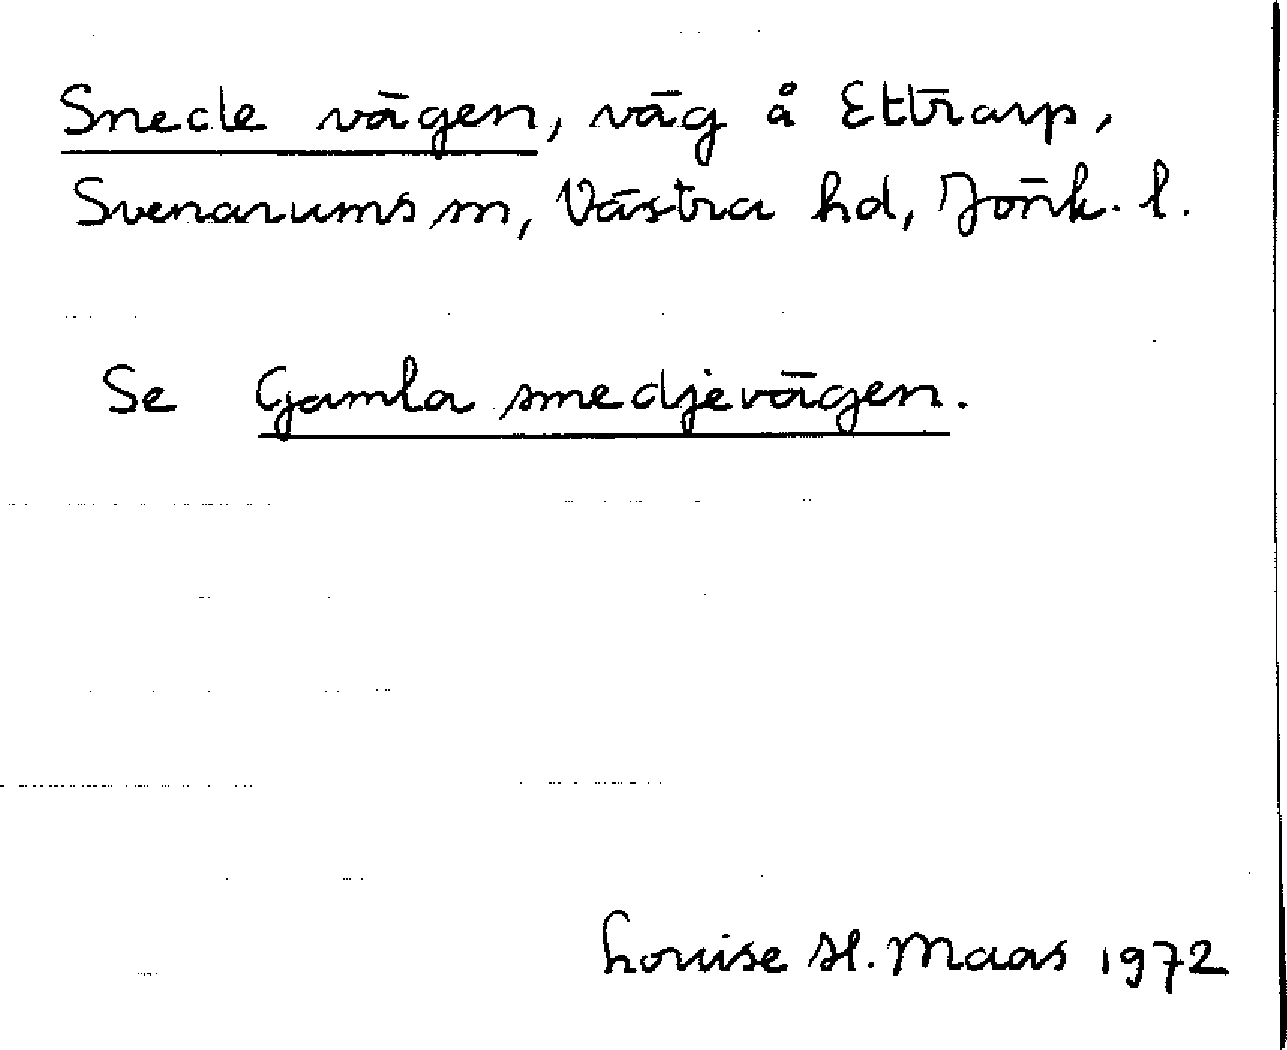 Snede vägen, väg å Ettrarp,
Svenarums sn, Västra hd, Jönk. l.
Se Gamla smedjevägen.
Louise H. Maas 1972